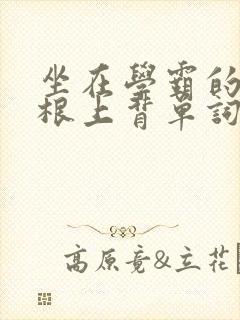 坐在學霸的
根上背單詞
高原竟&立花